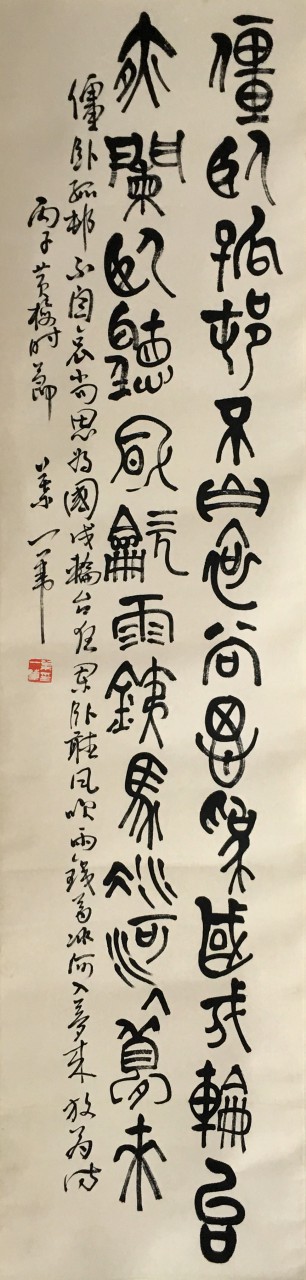 僵臥孤邨不自哀尚思為國戍輪台
夜闌臥聽風龡雨鐵馬冰河入夢來
僵臥孤邨不自哀尚思為國戍輪台夜闌臥聽風吹雨鐵馬冰河入夢來 放翁詩
丙子黃梅時節 葉一葦